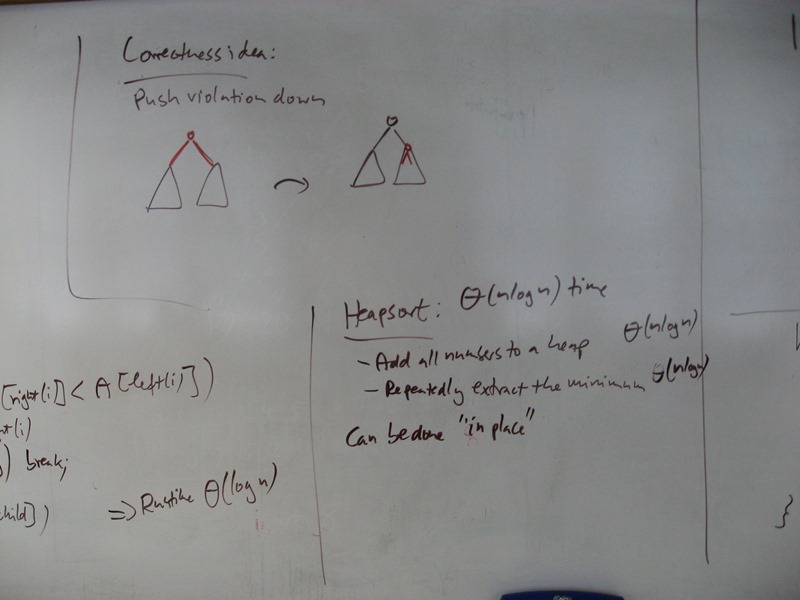 Correctness idea:
Push violation down
[right(i)] < A[left(i)])
break;
child])
⇒ Runtime Θ(log n)
Heapsort: Θ(n log n) time
- Add all numbers to a heap Θ(n log n)
- Repeatedly extract the minimum Θ(n log n)
Can be done "in place"
}